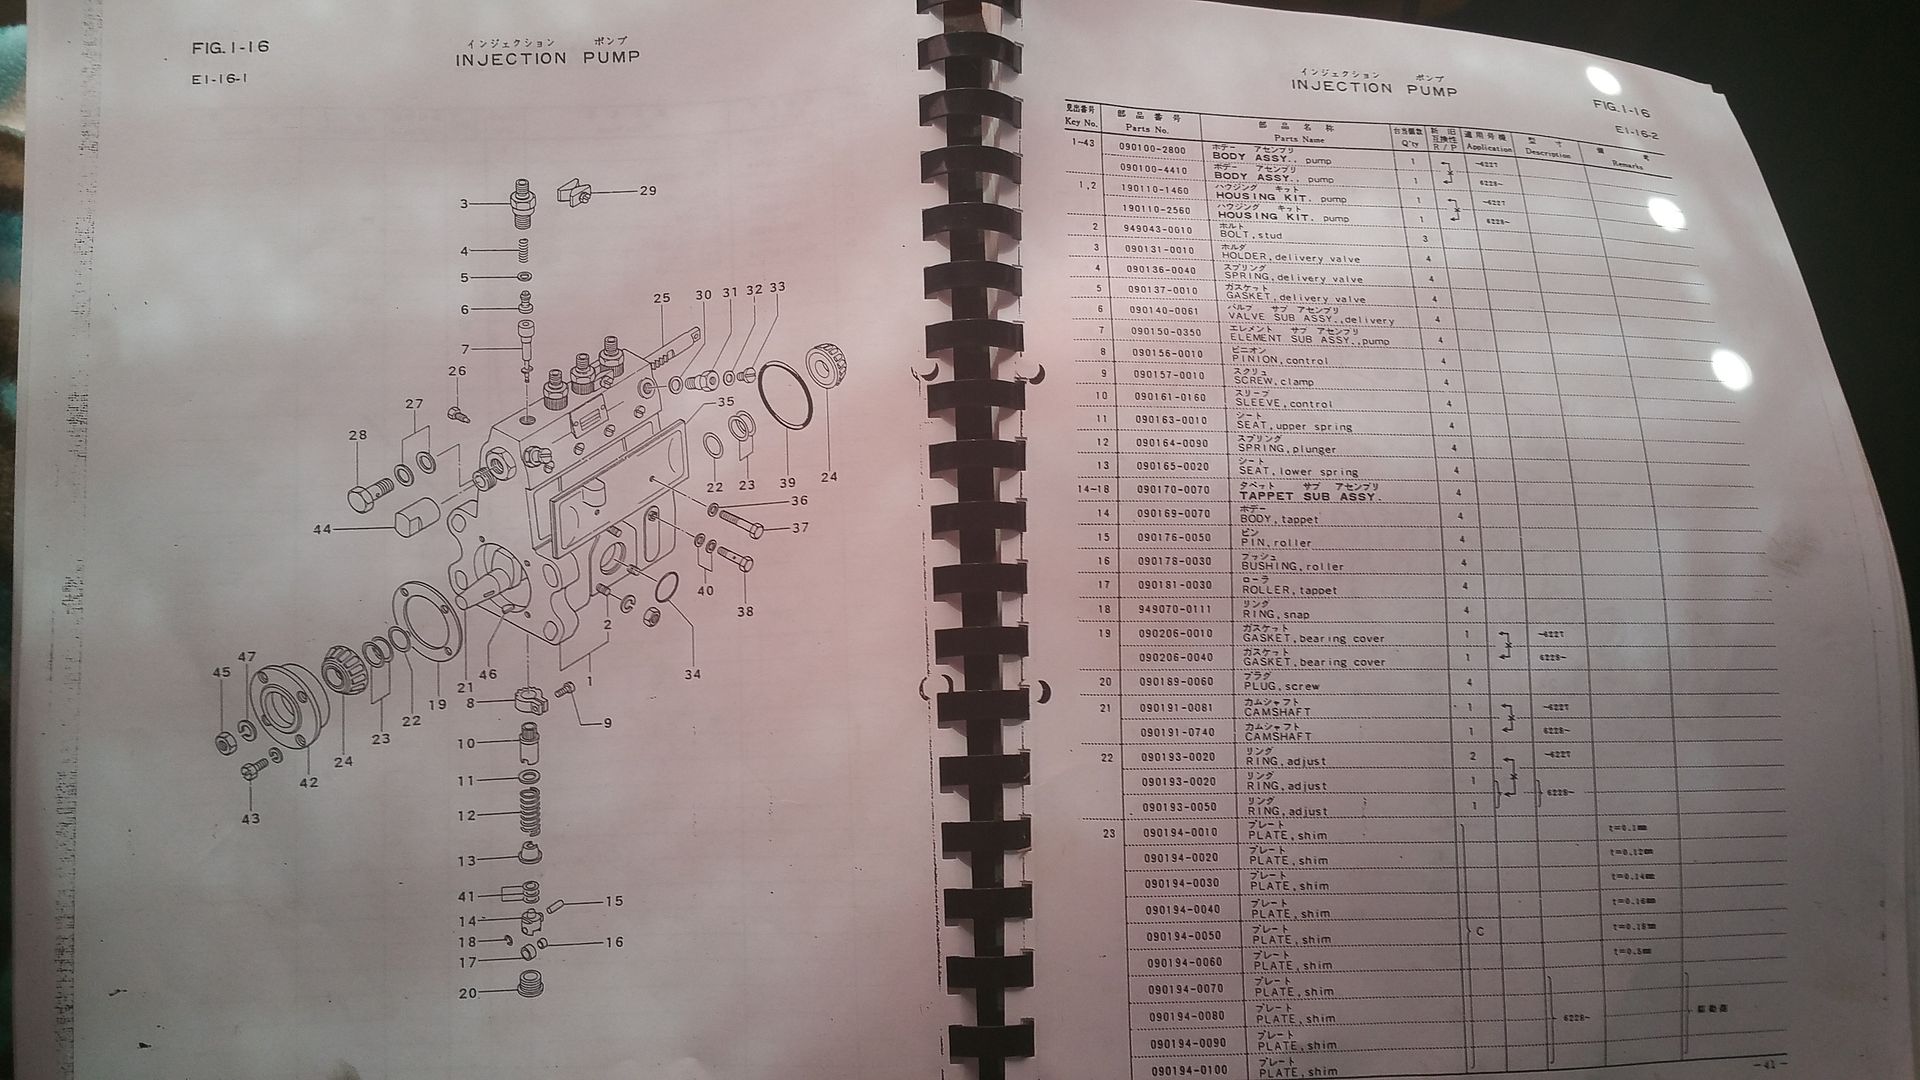 FIG. 1-16
E1-16-1
インジェクション ポンプ
INJECTION PUMP
29
3
4
5
6
7
25
30
31
32
33
26
27
28
35
22
23
39
24
36
37
44
40
38
2
34
1
46
47
45
19
21
8
9
22
23
24
42
43
10
11
12
13
41
14
15
18
16
17
20
インジェクション ポンプ
INJECTION PUMP
FIG. 1-16
E1-16-2
見出番号 部品番号 部品名称 台当個数 新旧互換性 適用号機 型寸 備考
Key No. Parts No. Parts Name Q'ty R/P Application Description Remarks
1~43 090100-2800 ボデー アセンブリ BODY ASSY., pump 1 ~6227
090100-4410 ボデー アセンブリ BODY ASSY., pump 1 6228~
1,2 190110-1460 ハウジング キット HOUSING KIT. pump 1 ~6227
190110-2560 ハウジング キット HOUSING KIT. pump 1 6228~
2 949043-0010 ボルト BOLT, stud 3
3 090131-0010 ホルダ HOLDER, delivery valve 4
4 090136-0040 スプリング SPRING, delivery valve 4
5 090137-0010 ガスケット GASKET, delivery valve 4
6 090140-0061 バルブ サブ アセンブリ VALVE SUB ASSY., delivery 4
7 090150-0350 エレメント サブ アセンブリ ELEMENT SUB ASSY., pump 4
8 090156-0010 ピニオン PINION, control 4
9 090157-0010 スクリュ SCREW, clamp 4
10 090161-0160 スリーブ SLEEVE, control 4
11 090163-0010 シート SEAT, upper spring 4
12 090164-0090 スプリング SPRING, plunger 4
13 090165-0020 シート SEAT, lower spring 4
14~18 090170-0070 タペット サブ アセンブリ TAPPET SUB ASSY. 4
14 090169-0070 ボデー BODY, tappet 4
15 090176-0050 ピン PIN, roller 4
16 090178-0030 ブッシュ BUSHING, roller 4
17 090181-0030 ローラ ROLLER, tappet 4
18 949070-0111 リング RING, snap 4
19 090206-0010 ガスケット GASKET, bearing cover 1 ~6227
090206-0040 ガスケット GASKET, bearing cover 1 6228~
20 090189-0060 プラグ PLUG, screw 4
21 090191-0081 カムシャフト CAMSHAFT 1 ~6227
090191-0740 カムシャフト CAMSHAFT 1 6228~
22 090193-0020 リング RING, adjust 2 ~6227
090193-0020 リング RING, adjust 1 6228~
090193-0050 リング RING, adjust 1
23 090194-0010 プレート PLATE, shim t=0.1mm
090194-0020 プレート PLATE, shim t=0.12mm
090194-0030 プレート PLATE, shim t=0.14mm
090194-0040 プレート PLATE, shim t=0.16mm
090194-0050 プレート PLATE, shim C t=0.18mm
090194-0060 プレート PLATE, shim t=0.5mm
090194-0070 プレート PLATE, shim
090194-0080 プレート PLATE, shim 6228~
090194-0090 プレート PLATE, shim
090194-0100 プレート PLATE, shim
-41-